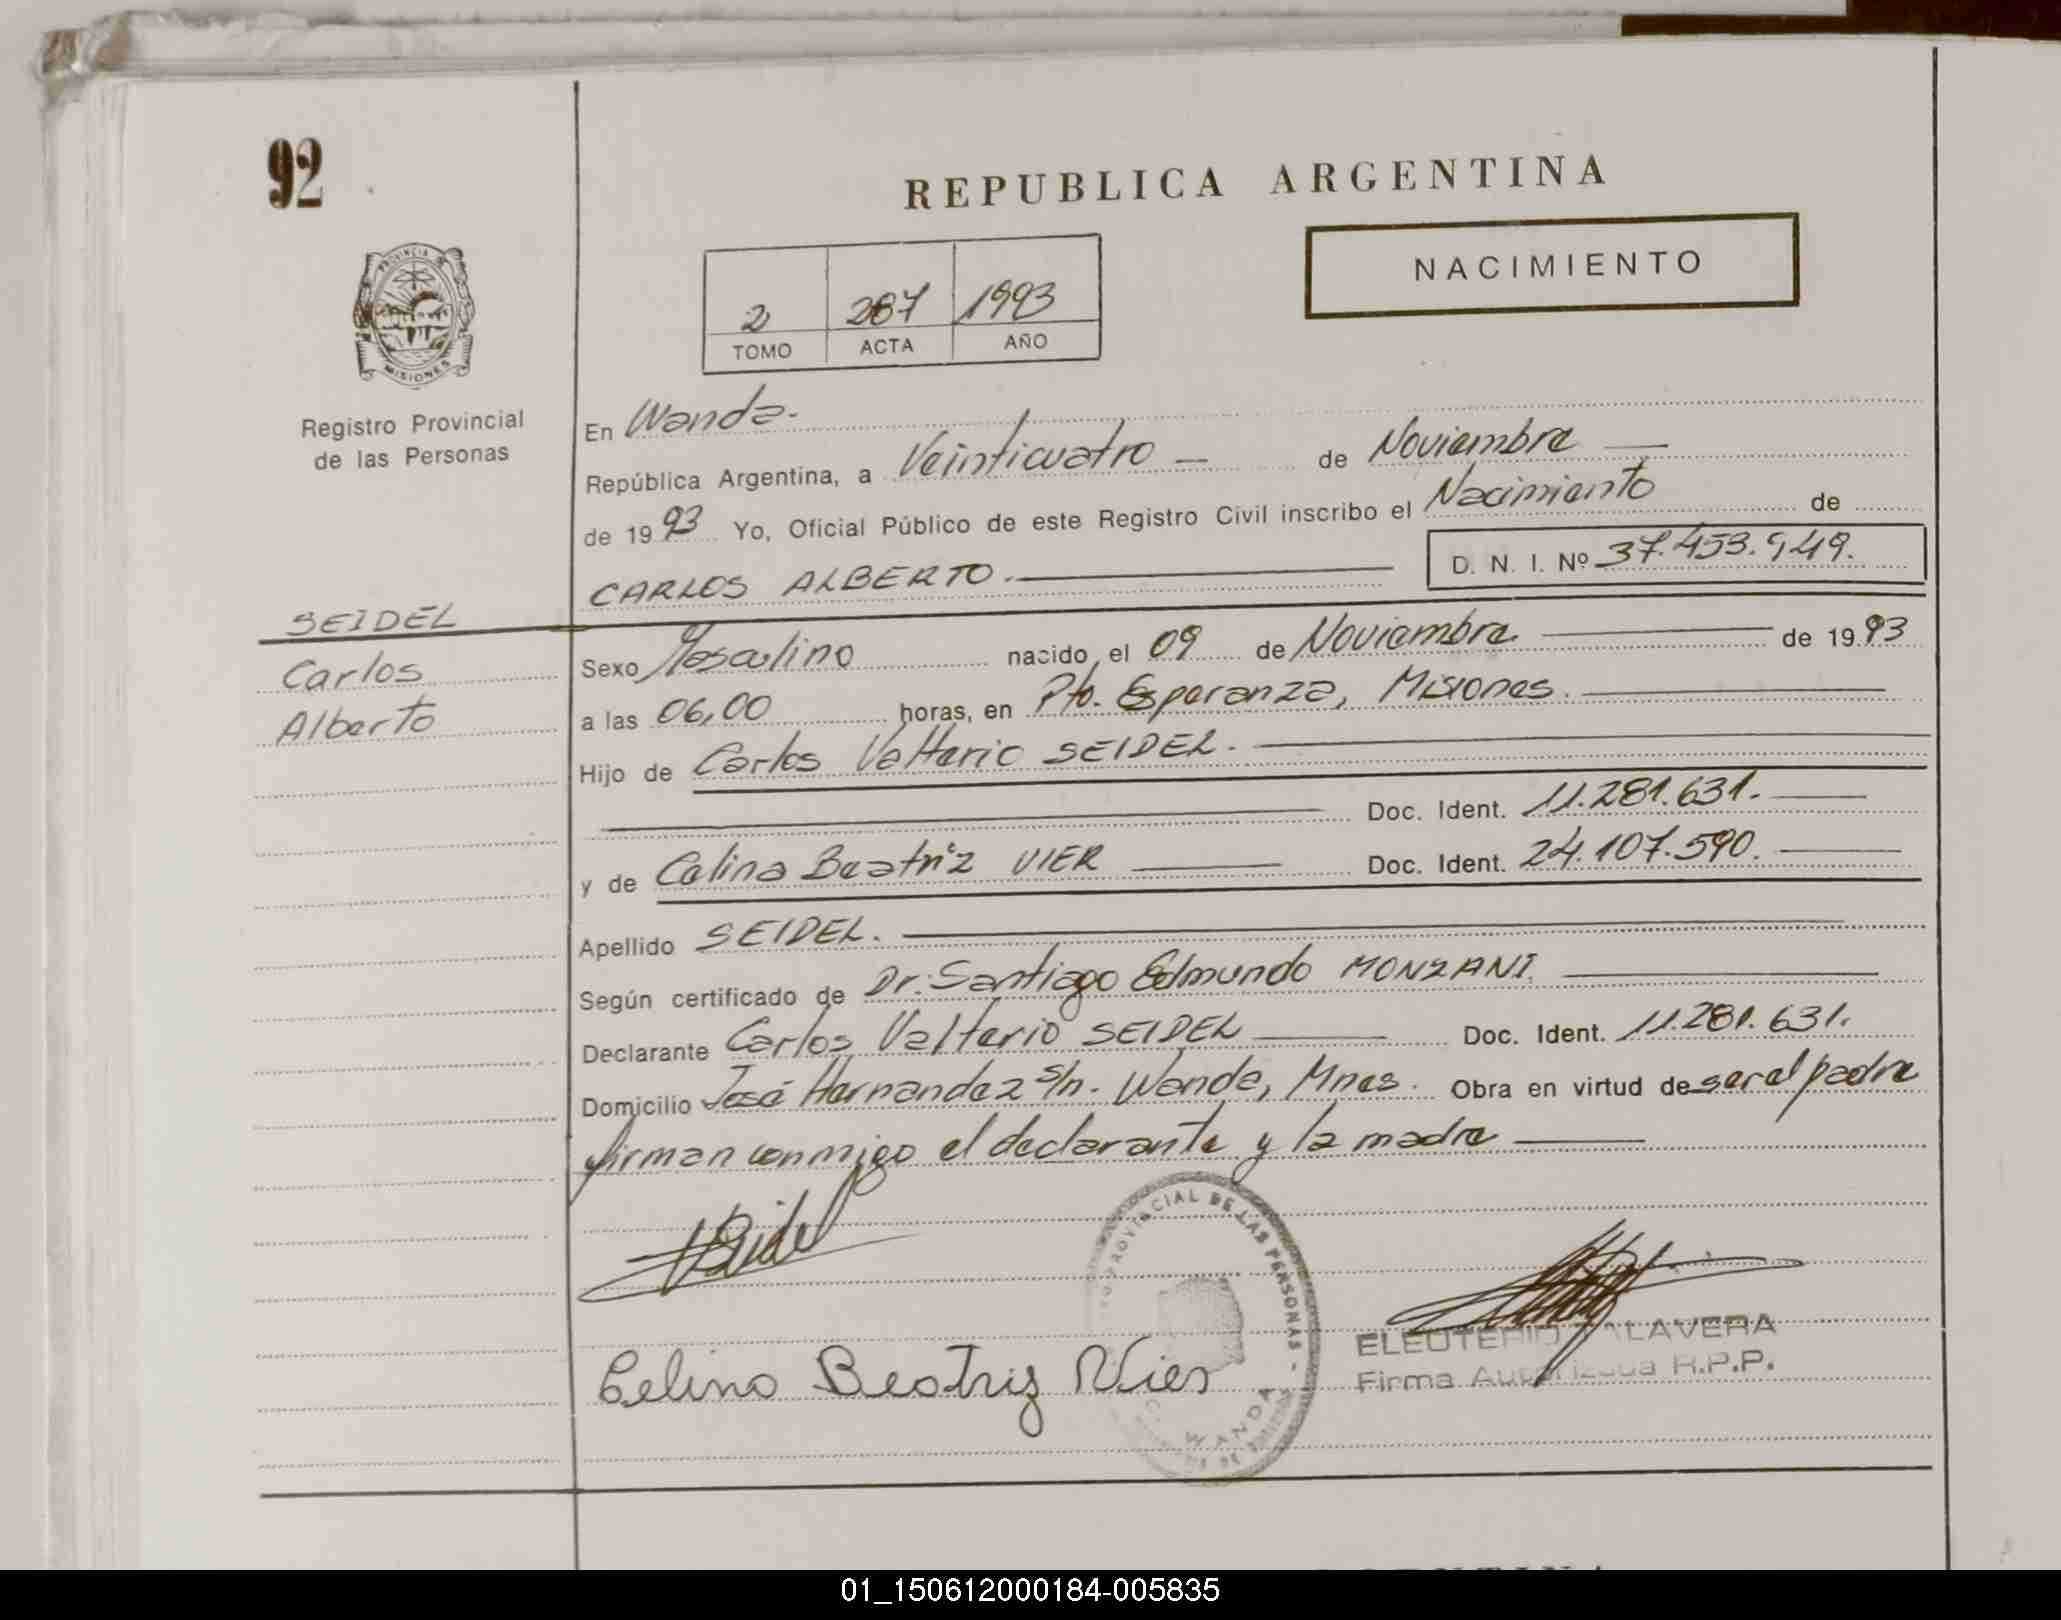 92
REPUBLICA ARGENTINA
NACIMIENTO
2 287 1993
TOMO ACTA AÑO
PROVINCIA DE
MISIONES
Registro Provincial
de las Personas
En Wanda.-
República Argentina, a Veinticuatro — de Noviembre —
de 1993 Yo, Oficial Público de este Registro Civil inscribo el Nacimiento de
CARLOS ALBERTO. D. N. I. Nº 37.453.949.
SEIDEL
Carlos
Alberto
Sexo Masculino nacido el 09 de Noviembre de 1993
a las 06,00 horas, en Pto. Esperanza, Misiones.
Hijo de Carlos Valterio SEIDEL.
Doc. Ident. 11.281.631.
y de Celina Beatriz VIER Doc. Ident. 24.107.590.
Apellido SEIDEL.
Según certificado de Dr. Santiago Edmundo MONZANI.
Declarante Carlos Valterio SEIDEL Doc. Ident. 11.281.631.
Domicilio José Hernandez s/n. Wanda, Mnes. Obra en virtud de ser el padre
firman conmigo el declarante y la madre
Seidel
PROVINCIAL DE LAS PERSONAS -
WANDA
ELEUTERIO TALAVERA
Firma Autorizada R.P.P.
Celina Beatriz Vier
01_150612000184-005835